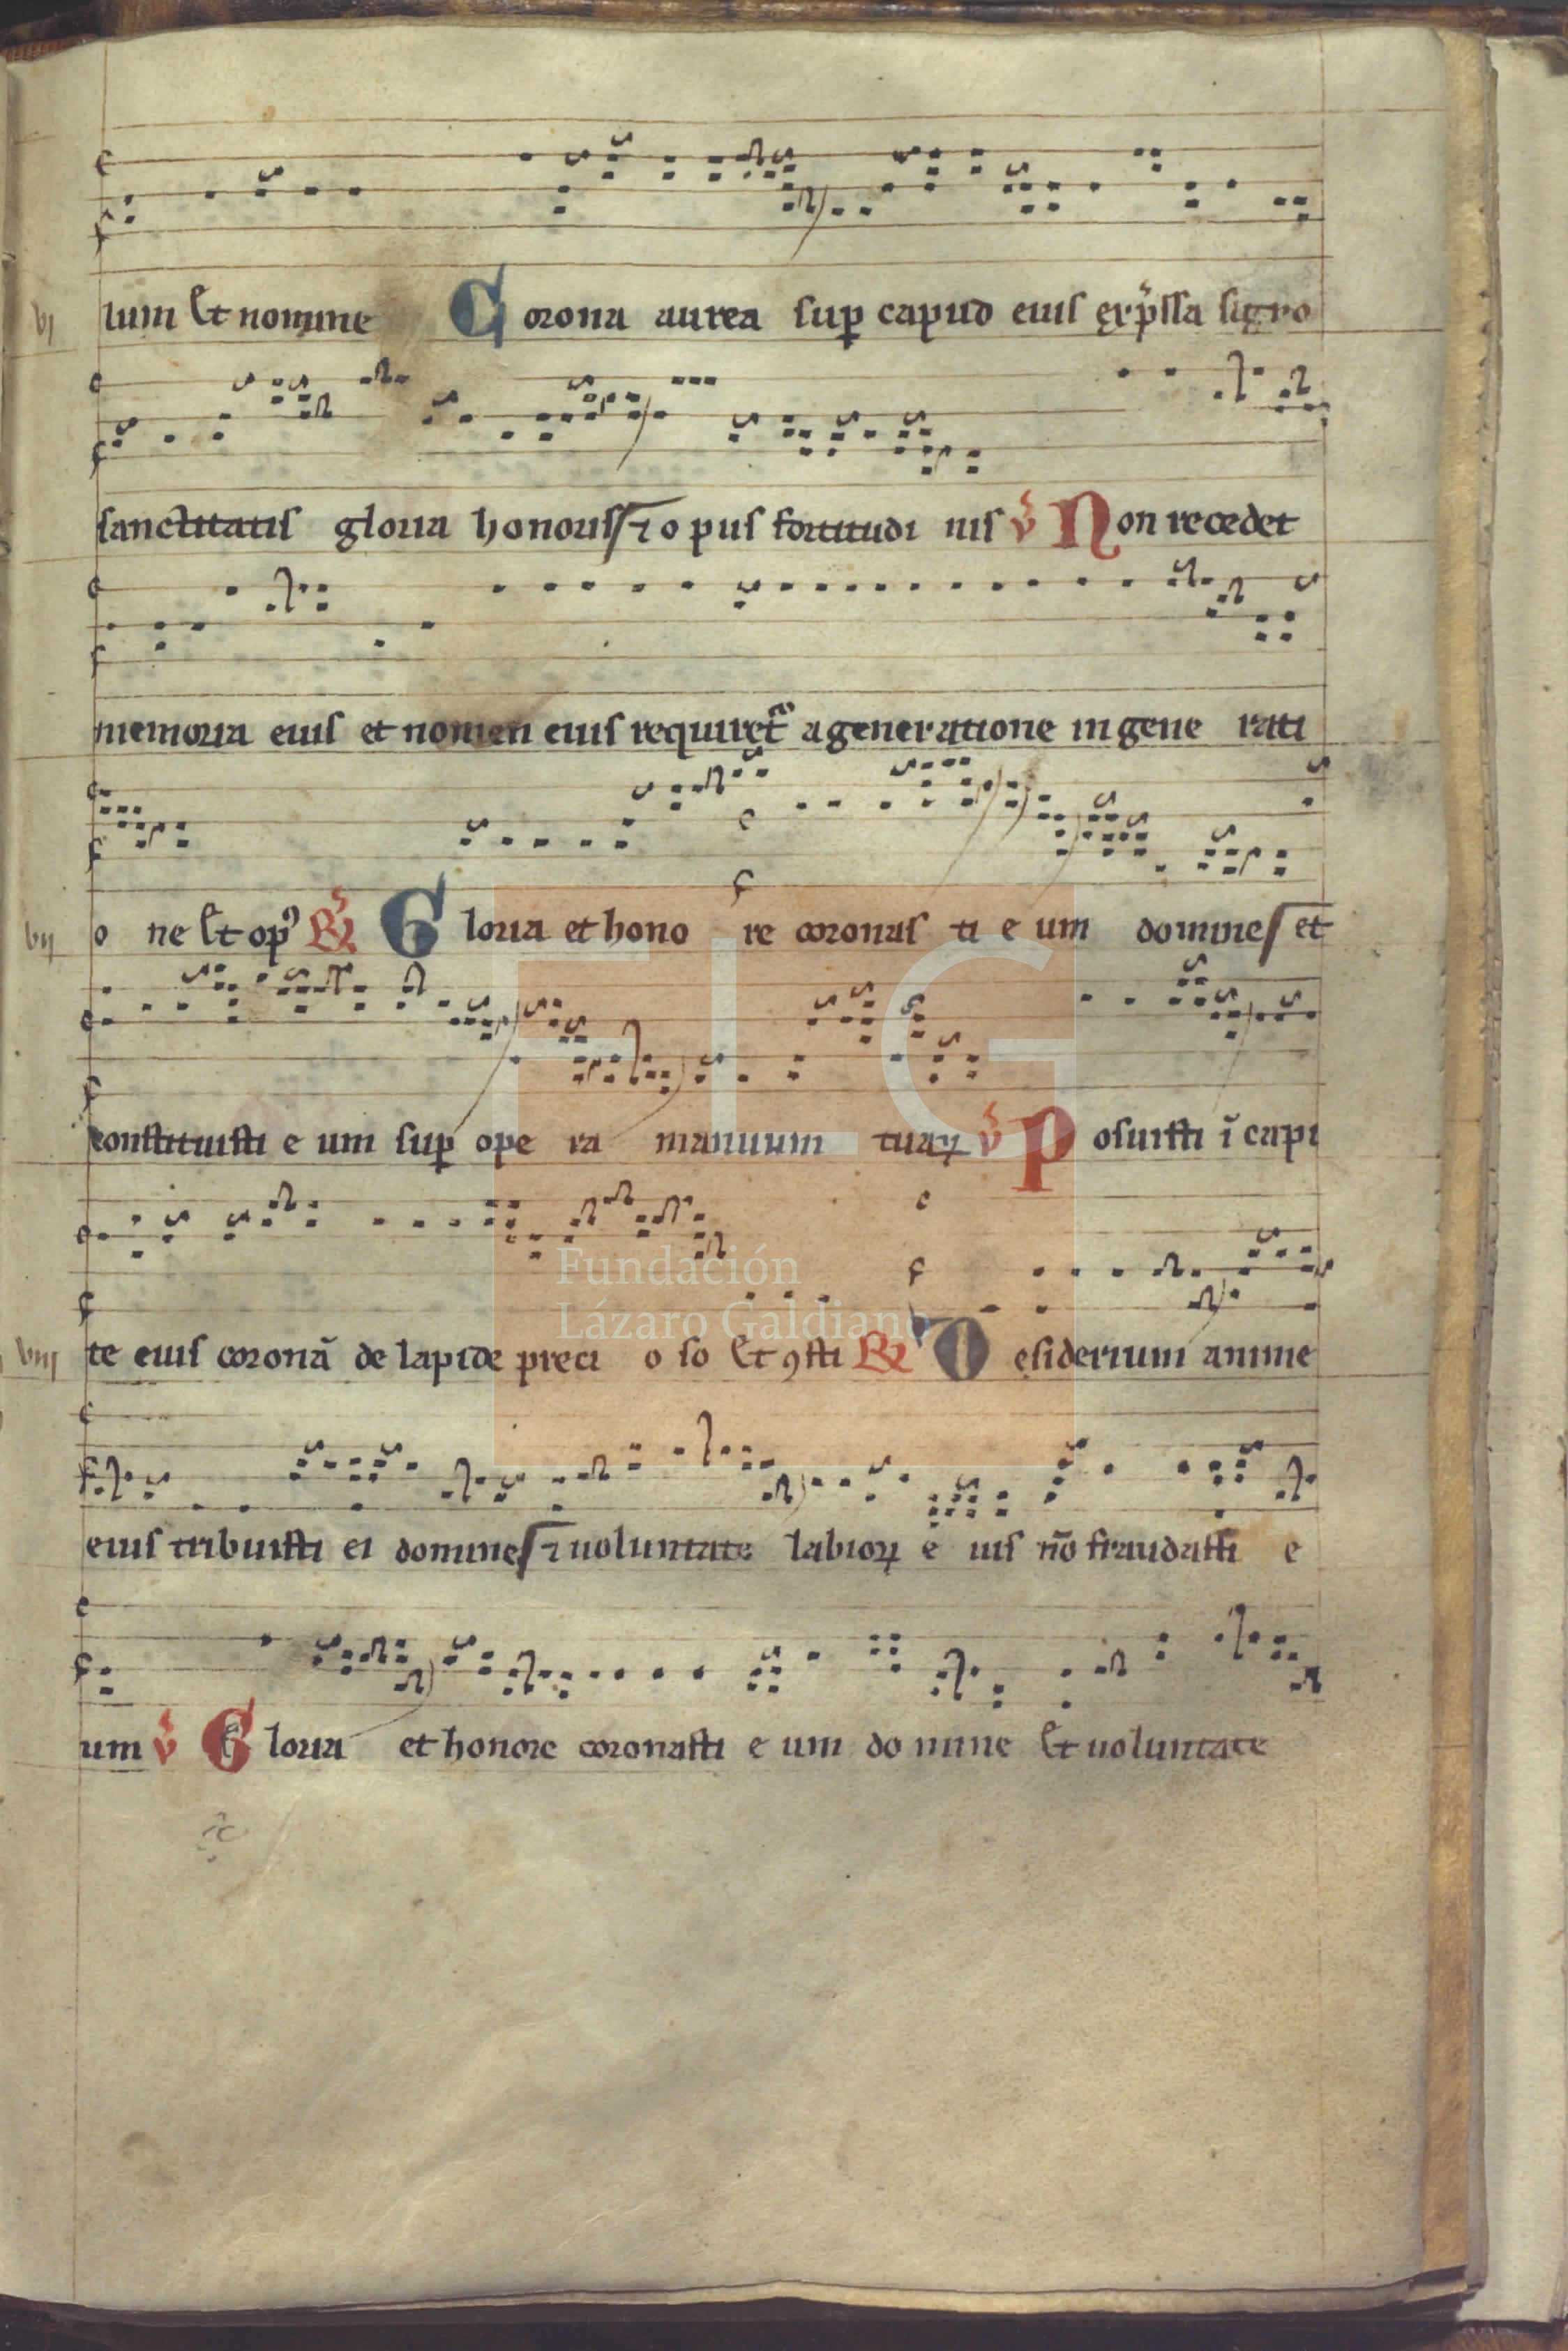 vi lum Et nomine Corona aurea sup capud eius exp̄ssa signo
sanctitatis gloria honoris et opus fortitudi nis v̄ Non recedet
memoria eius et nomen eius requiret᷑ a generatione in gene rati
vii o ne Et op' R̄ Gloria et hono re coronas ti e um domine et
constituisti e um sup ope ra manuum tuaꝝ v̄ Posuisti ī capi
viii te eius coronā de lapide preci o so Et ꝯsti R̄ Desiderium anime
eius tribuisti ei domine et uoluntate labioꝝ e ius nō fraudasti e
um v̄ Gloria et honore coronasti e um do mine Et uoluntate
FLG
Fundación
Lázaro Galdiano